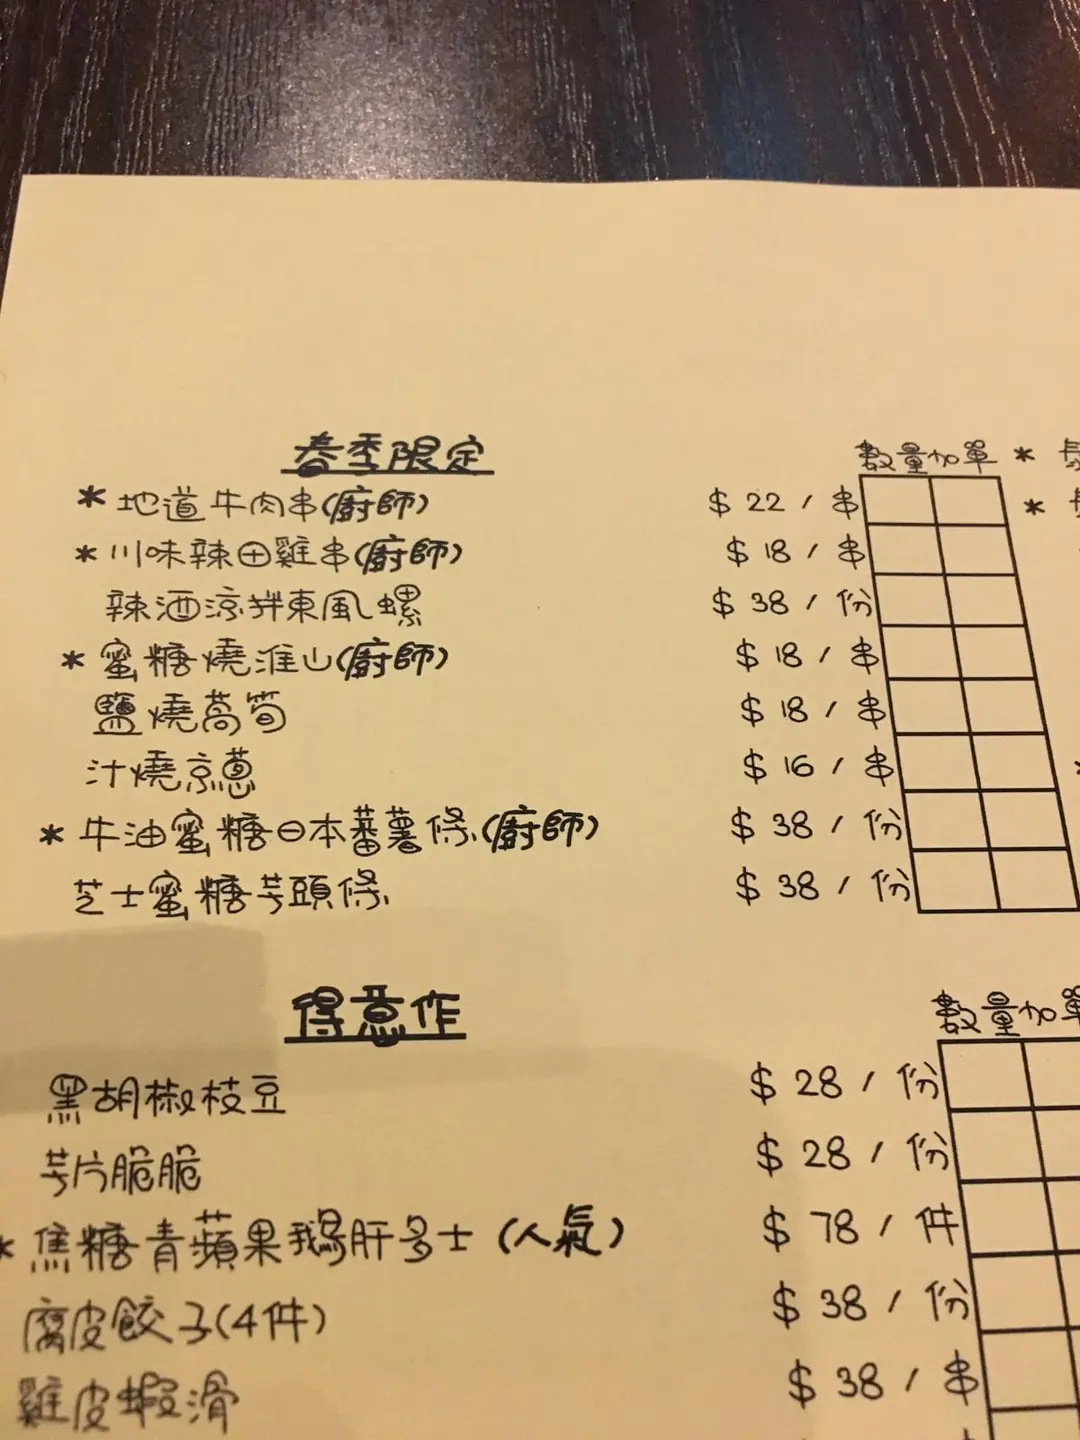 春季限定 數量加單 *
*地道牛肉串(廚師) $22/串 *
*川味辣田雞串(廚師) $18/串
辣酒涼拌東風螺 $38/份
*蜜糖燒淮山(廚師) $18/串
鹽燒萵筍 $18/串
汁燒京蔥 $16/串
*牛油蜜糖日本蕃薯條(廚師) $38/份
芝士蜜糖芋頭條 $38/份
得意作 數量加單
黑胡椒枝豆 $28/份
芋片脆脆 $28/份
*焦糖青蘋果鵝肝多士(人氣) $78/件
腐皮餃子(4件) $38/份
雞皮蝦滑 $38/串